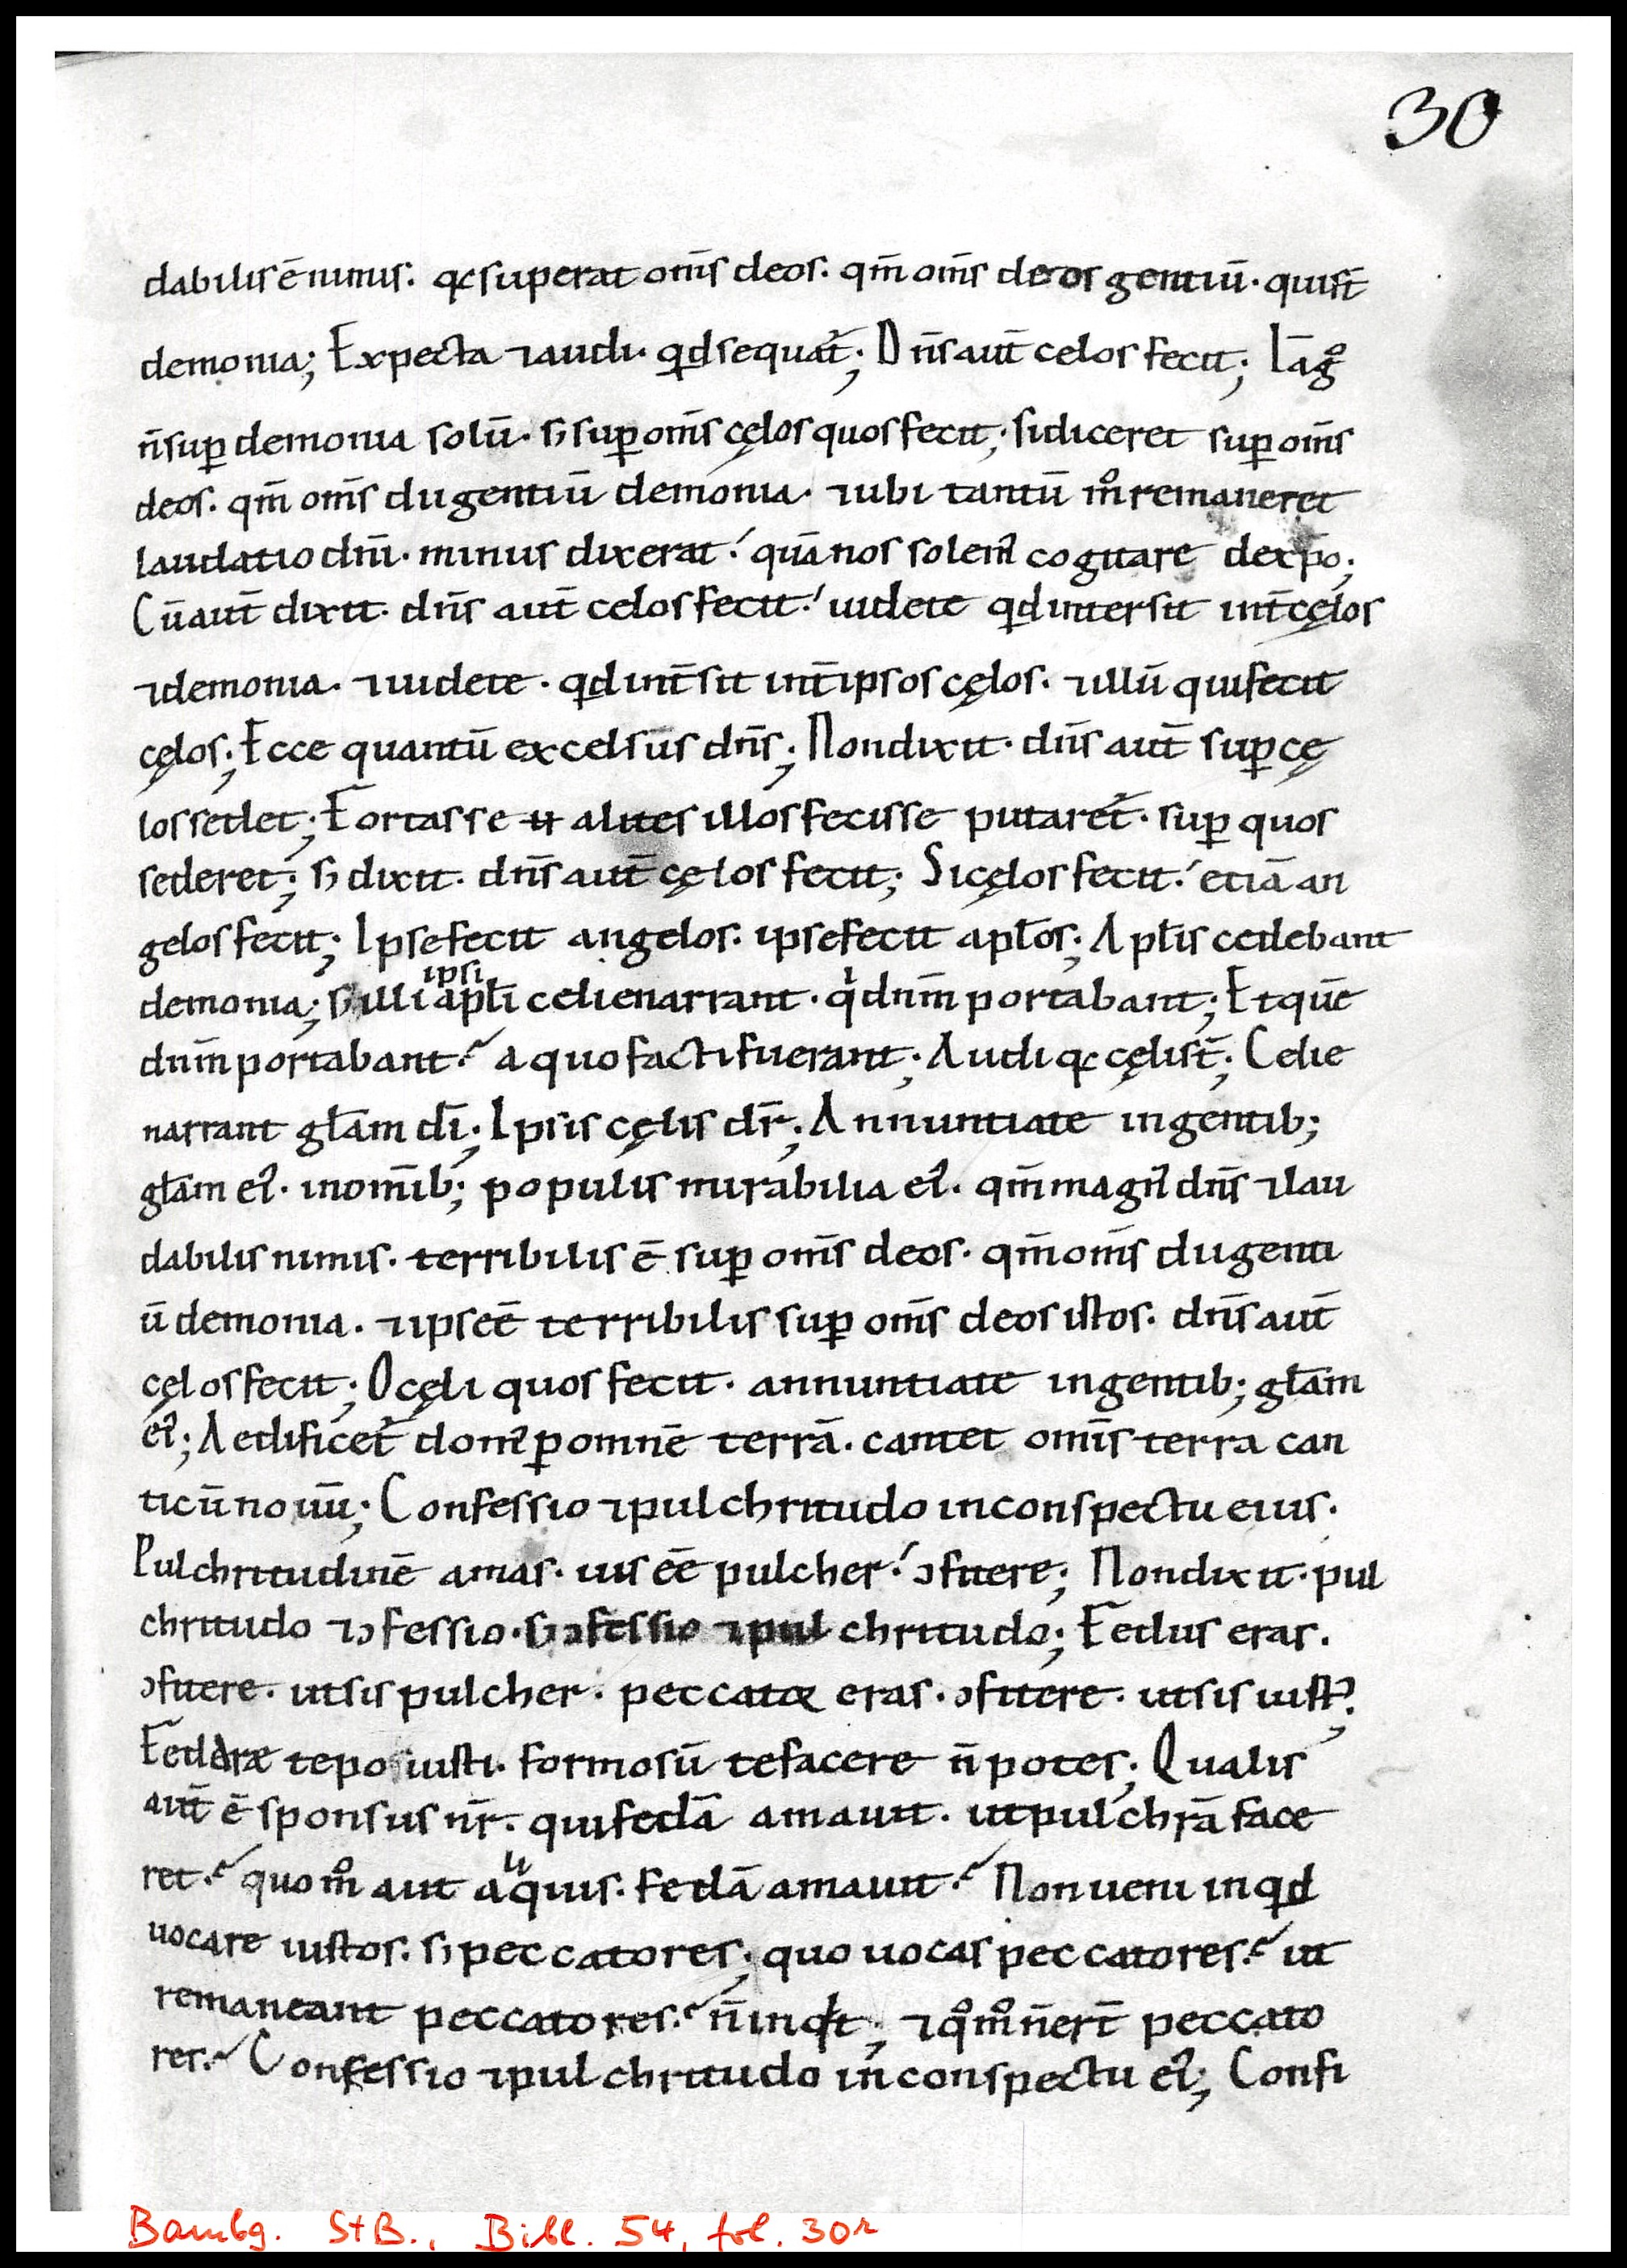 30
dabilis ē nimis. qꝫ superat om̄s deos. qm̄ om̄s deos gentiū. qui sт̄
demonia; Expecta ⁊ audi. qd sequat᷑; Dn̄s aut̄ celos fecit; Ḡ āgͦ
n̄ suꝑ demonia solū. s; suꝑ om̄s cęlos quos fecit; si diceret suꝑ om̄s
deos. qm̄ om̄s dii gentiū demonia. ⁊ ubi tantū mͦ remaneret
laudatio dn̄i. minus dixerat. quā nos solem᷒ cogitare de xp̄o;
Cū aut̄ dixit. dn̄s aut̄ celos fecit. uidete qd intersit int̄ cęlos
⁊ demonia. ⁊ uidete. qd int̄sit int̄ ipsos cęlos. ⁊ illū qui fecit
cęlos; Ecce quantū excelsus dn̄s; Non dixit. dn̄s aut̄ suꝑ cę
los sedet; Fortasse u̵ alit̵es illos fecisse putaret᷑. suꝑ quos
sederet; s; dixit. dn̄s aut̄ cęlos fecit; Si cęlos fecit. etiā an
gelos fecit; Ipse fecit angelos. ipse fecit apl̄os; Apl̄is cedebant
demonia; s; illi ipsi apl̄i celi enarrant. qͥ dn̄m portabant; Et quē
dn̄m portabant? a quo facti fuerant; Audi qꝫ cęli sт̄; Celi e
narrant gl̄am dī; Ipsis cęlis dr̄; Annuntiate in gentib;
gl̄am ei᷒. in om̄ib; populis mirabilia ei᷒. qm̄ magn᷒ dn̄s ⁊ lau
dabilis nimis. terribilis ē suꝑ om̄s deos. qm̄ om̄s dii genti
ū demonia. ⁊ ipse ē terribilis suꝑ om̄s deos istos. dn̄s aut̄
cęlos fecit; O cęli quos fecit. annuntiate in gentib; gl̄am
ei᷒; Aedificet᷑ dom᷒ ꝑ omnē terrā. cantet om̄is terra can
ticū nouū; Confessio ⁊ pulchritudo in conspectu eius.
Pulchritudinē amas. uis eē pulcher. ↄfitere; Non dixit. pul
chritudo ⁊ ↄfessio. s; ↄfessio ⁊ pul chritudo; Fedus eras.
ↄfitere. ut sis pulcher. peccatoꝝ eras. ↄfitere. ut sis iust᷒;
Fedare te potuisti. formosū te facere n̄ potes; Qualis
aut̄ ē sponsus nr̄. qui fedā amauit. ut pulchrā face
ret? quo mͦ aut aliquis. fedā amauit? Non ueni inqd
uocare iustos. s; peccatores. quo uocas peccatores? ut
remaneant peccatores? n̄ inqͥt; ⁊ qͦ mͦ n̄ ert̄ peccato
res? Confessio ⁊ pulchritudo in conspectu ei᷒; Confi
Bambg. StB., Bibl. 54, fol. 30r